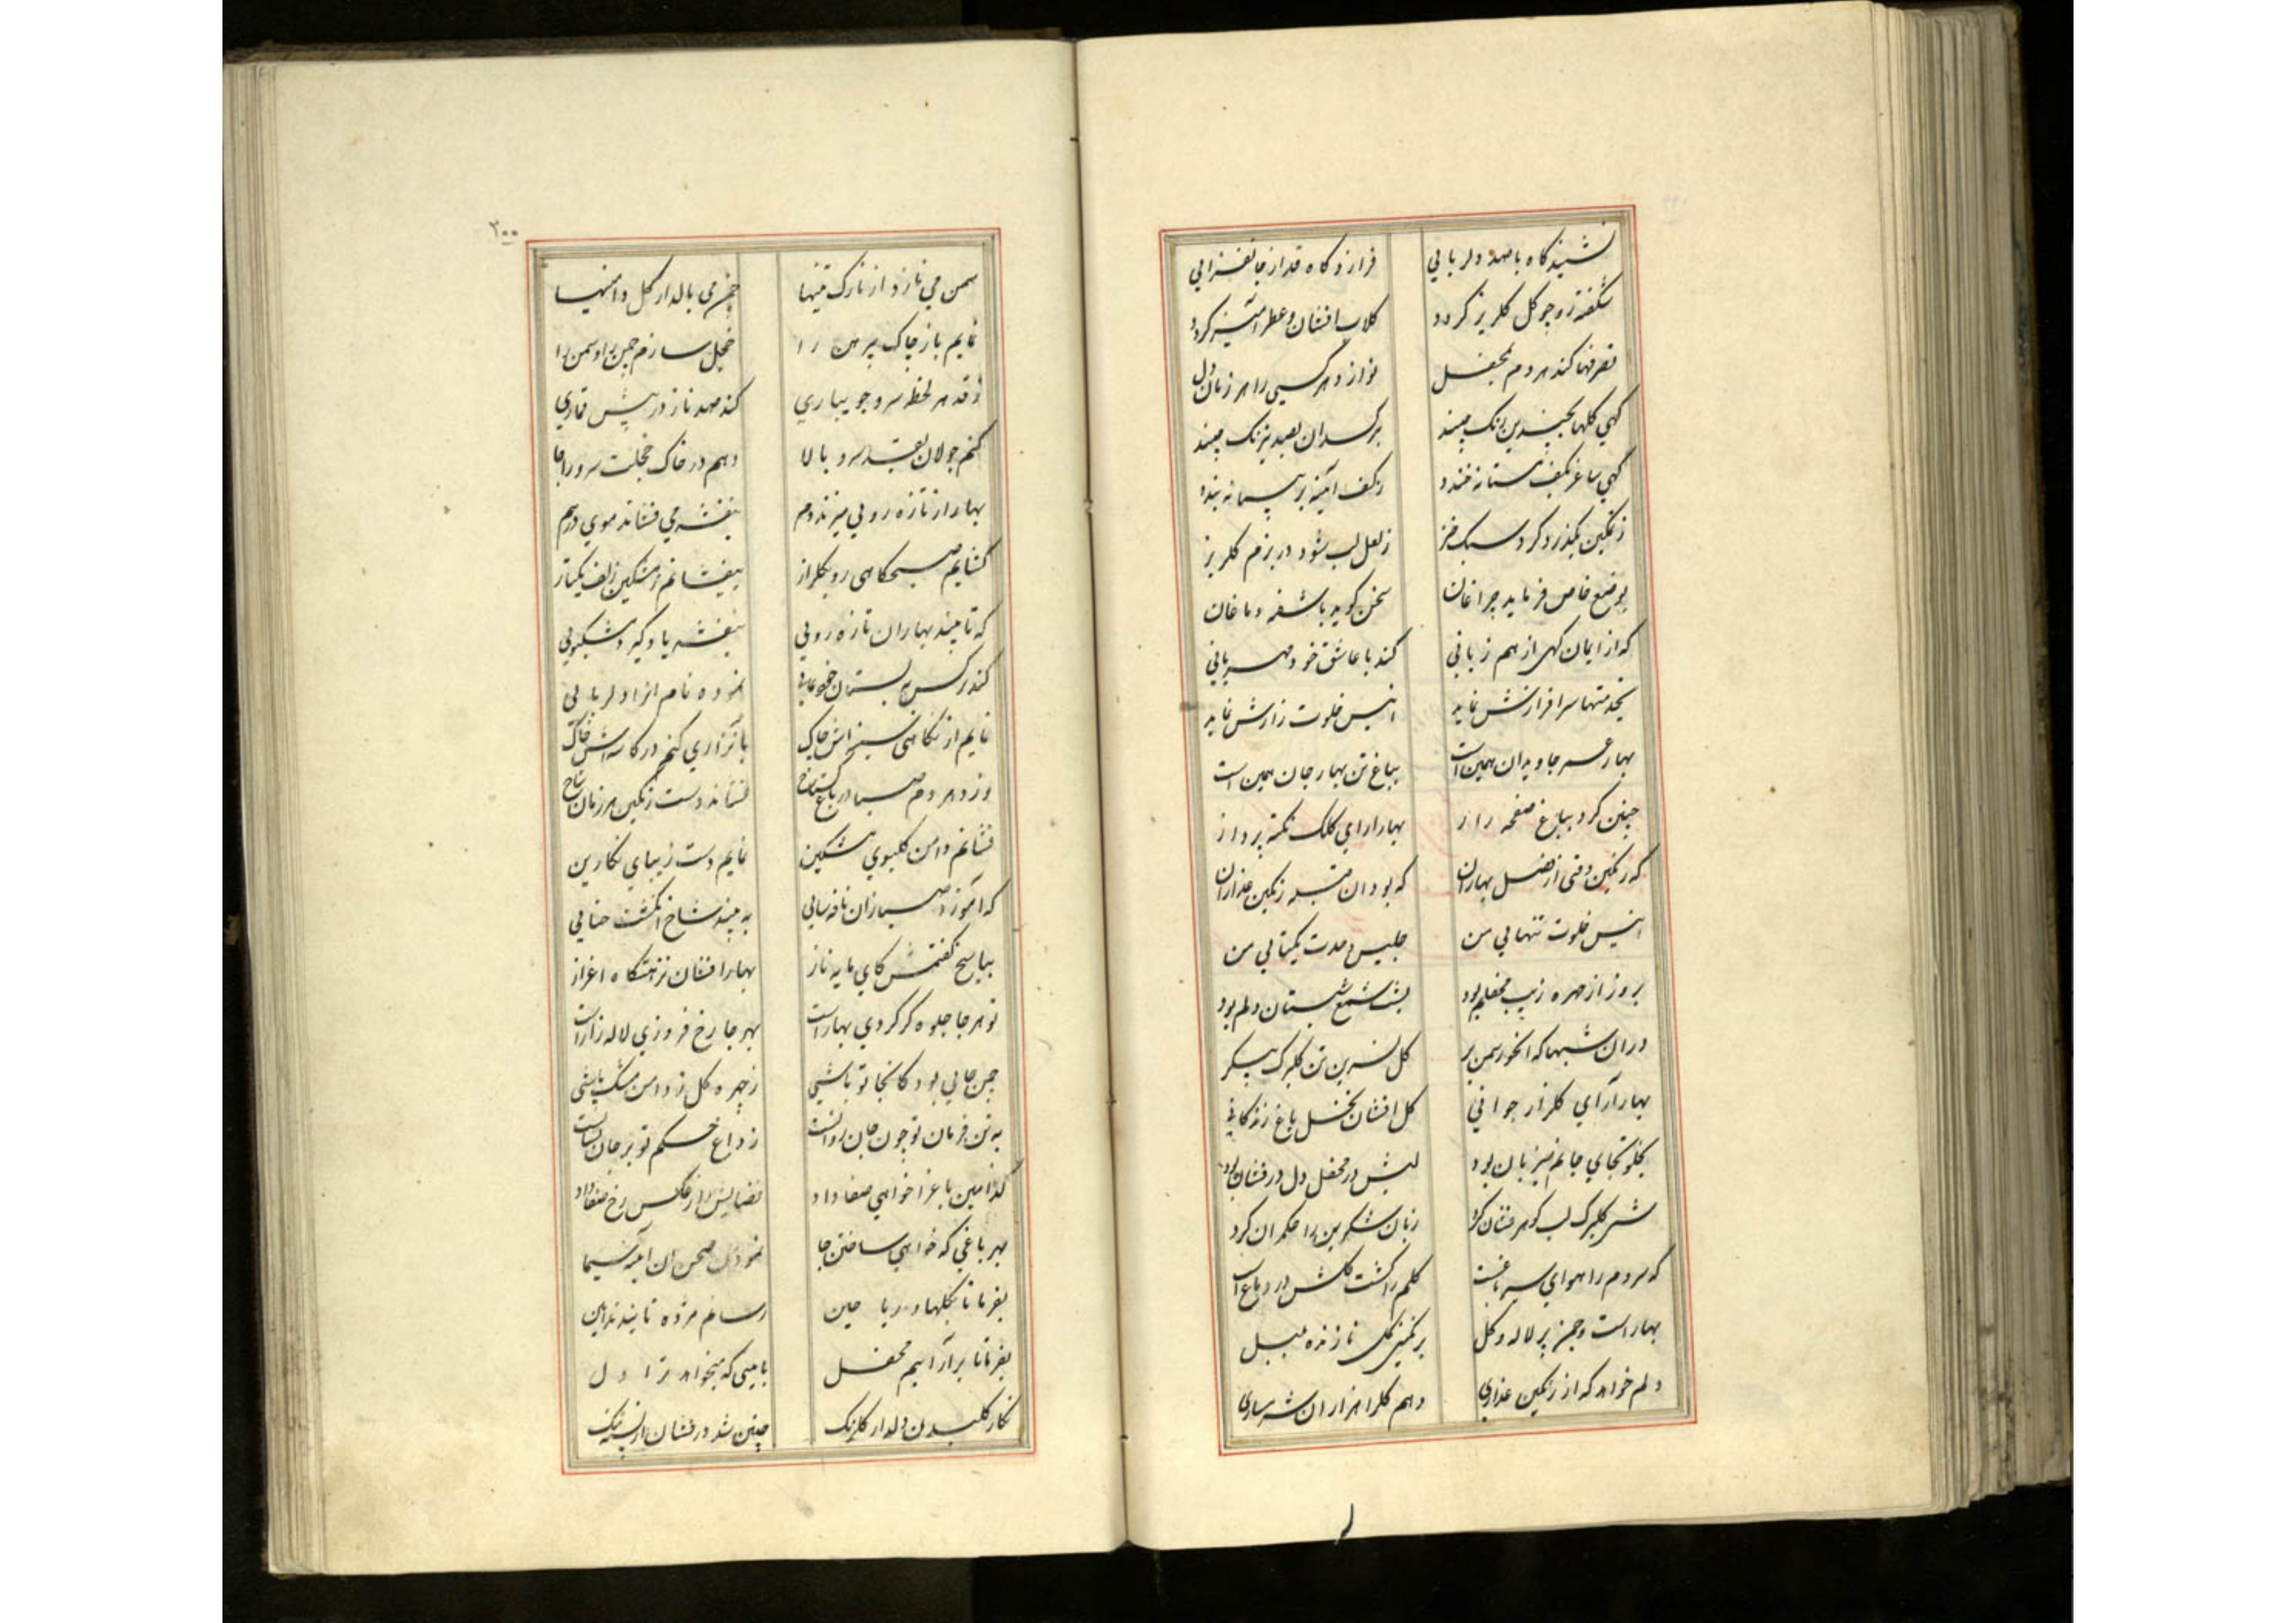 نشیند گاه با صد دلربایی
فرازد گاه قد از جانفزایی
شکفته رو چو گل گلریز گردد
گلاب افشان و عطر آمیز گردد
تصرفها کند هر دم بمحفل
نوازد هر کسی را هر زمان دل
گهی گلها بچندین رنک چیند
گهی ساغر بکف مستانه خندد
بکف آیینه
ز تمکین بگذرد گردد سبک خیز
ز لعل لب شود در بزم گلریز
بوضع خاص فرماید چراغان
سخن گوید باشفته دماغان
که از ایمان گهی از هم زبانی
کند با عاشق خود مهربانی
بخدمتها سرافرازش نماید
انیس خلوت رازش نماید
بهار عمر جاویدان همین است
بباغ تن بهار جان همین است
چنین کرد بباغ صفحه راز
بهارارای کلک نکته پرداز
که رنگین وقتی از فصل بهاران
که بود ان قبله رنگین عذاران
انیس خلوت تنهایی من
جلیس وحدت یکتایی من
بروز از چهره زیب محفلم بود
بشب شمع شبستان دلم بود
دران شبها که انخور سمن بر
گل نسرین تن گلبرگ پیکر
بهار آرای گلزار جوانی
گل افشان نخل باغ زندگانی
بخلوتجای جانم میزبان بود
لبش در محفل دل در فشان بود
گلبرگ لب گوهر فشان کرد
زبان شکرین را حکمران کرد
که مردم را هوای سیر باغست
گلم را گشت گلشن در دماغ است
بهار است و چمن پر لاله و گل
برنگین گل نازنده بلبل
دلم خواهد که از رنگین عذاری
دهم گلرا هزاران شرمساری
۲۰۰
سمن می نازد از نازک تنیها
چمن می بالد از گل دامنیها
نمایم باز چاک پیرهن را
خجل سازم چمن را و سمن را
ز قد هر لحظه سرو جویباری
کند صد ناز در پیش قماری
کنم جولان بقد سرو بالا
دهم در خاک خجلت سرو را جا
بهار از تازه رویی میزند دم
بنفشه می فشاند موی درهم
گشایم صبحگاهی رو بگلزار
بیفشانم ز مشکین زلف یکتار
که تا بیند بهاران تازه رویی
بنفشه یاد گیرد مشکبویی
کند نرگس به بستان
نموده نام انرا دلربایی
نمایم از نگاهی سینه اش چاک
کنم در کاسه اش خاک
وزد هر دم صبا در باغ گستاخ
فشاند دست رنگین هر زمان شاخ
فشانم دامن گلبوی مشکین
نمایم دست زیبای نگارین
که آموزد صبا زان نافه سایی
به بیند شاخ انگشت حنایی
بپاسخ گفتمش کای مایه ناز
بهارافشان نزهتگاه اعزاز
تو هر جا جلوه گر گردی بهار است
بهر جا رخ فروزی لاله زار است
چمن جایی بود کانجا تو باشی
ز چهره گل ز دامن مشک پاشی
به تن فرمان تو چون جان روانست
ز داغ حکم تو بر جان نشانست
کدامین باغرا خواهی صفا داد
فضایش را ز عکس رخ صفا داد
بهر باغی که خواهی ساختن جا
نمودن صحن ان آیینه سیما
بفرما تا بگلها و ریاحین
رسانم مژده تا بندند آیین
بفرما تا برآرائیم محفل
بآیینی که میخواهد ترا دل
نگار گلبدن دلدار گلرنک
چنین شد در فشان